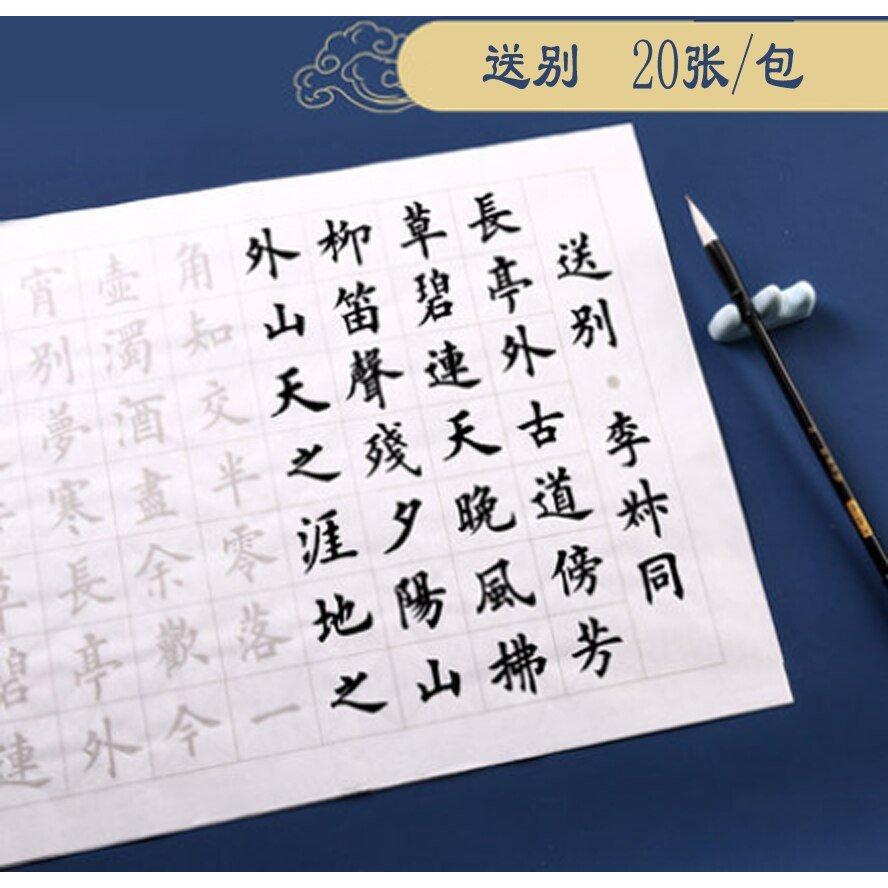 送别 20张/包
送别·李叔同
長亭外古道傍芳
草碧連天晚風拂
柳笛聲殘夕陽山
外山天之涯地之
角知交半零落一
壺濁酒盡余歡今
宵别夢寒長亭外
草碧連